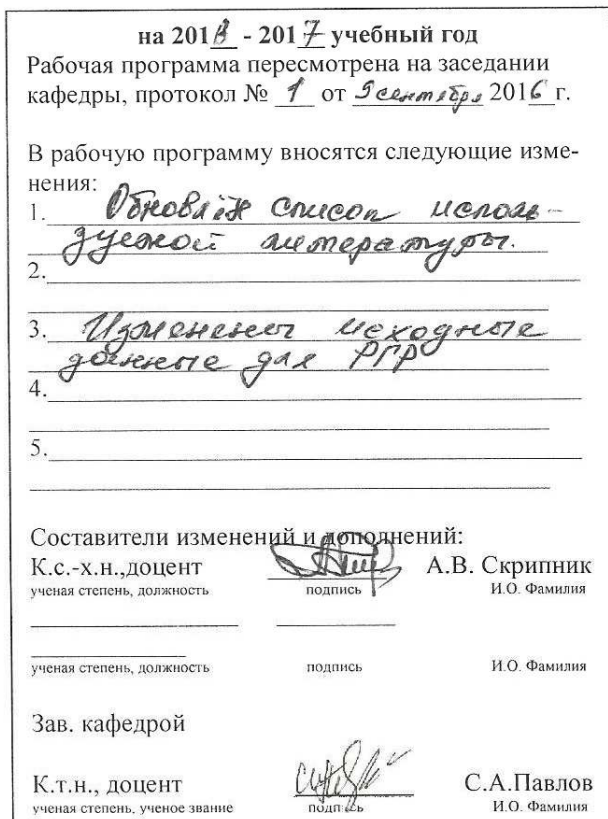 на 2016 - 2017 учебный год
Рабочая программа пересмотрена на заседании
кафедры, протокол № 1 от 9 сентября 2016 г.
В рабочую программу вносятся следующие изме-
нения:
1. Обновлён список исполь-
зуемой литературы.
2.
3. Изменены исходные
данные для РГР
4.
5.
Составители изменений и дополнений:
К.с.-х.н.,доцент А.В. Скрипник
ученая степень, должность подпись И.О. Фамилия
ученая степень, должность подпись И.О. Фамилия
Зав. кафедрой
К.т.н., доцент С.А.Павлов
ученая степень, ученое звание подпись И.О. Фамилия